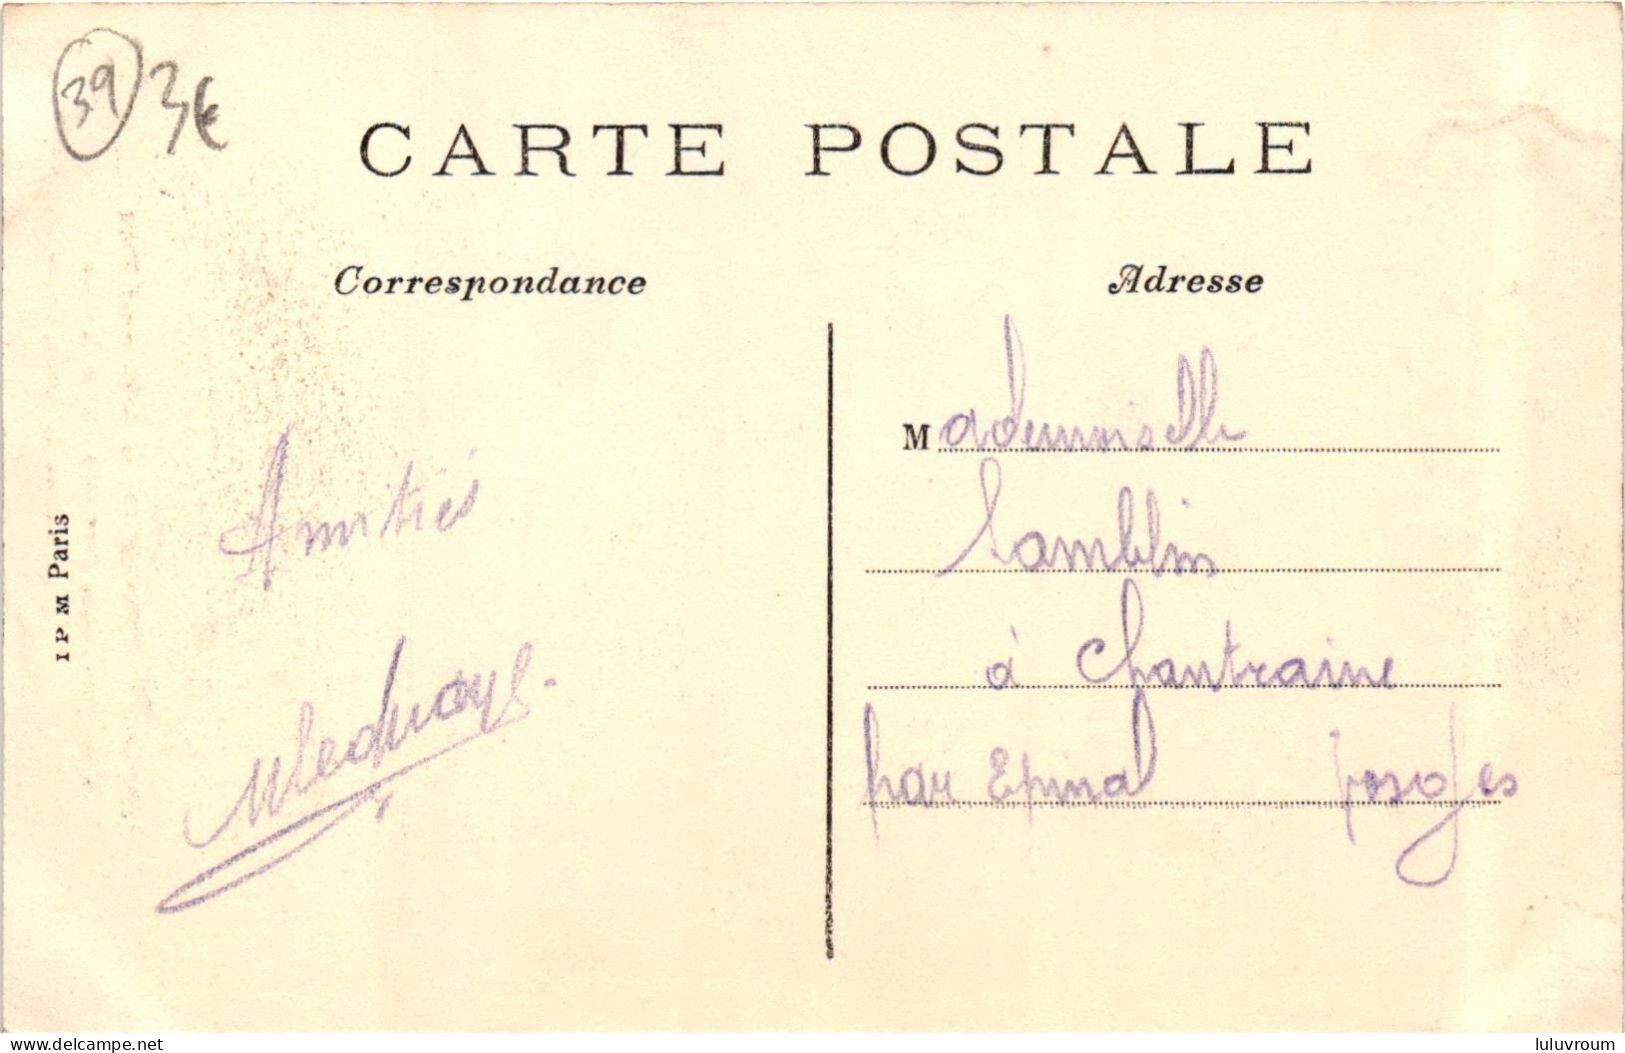 39 3€
CARTE POSTALE
Correspondance
Adresse
Mademoiselle
Lamblin
à Chantraine
par Epinal Vosges
Amitiés
I P M Paris
www.delcampe.net
luluvroum